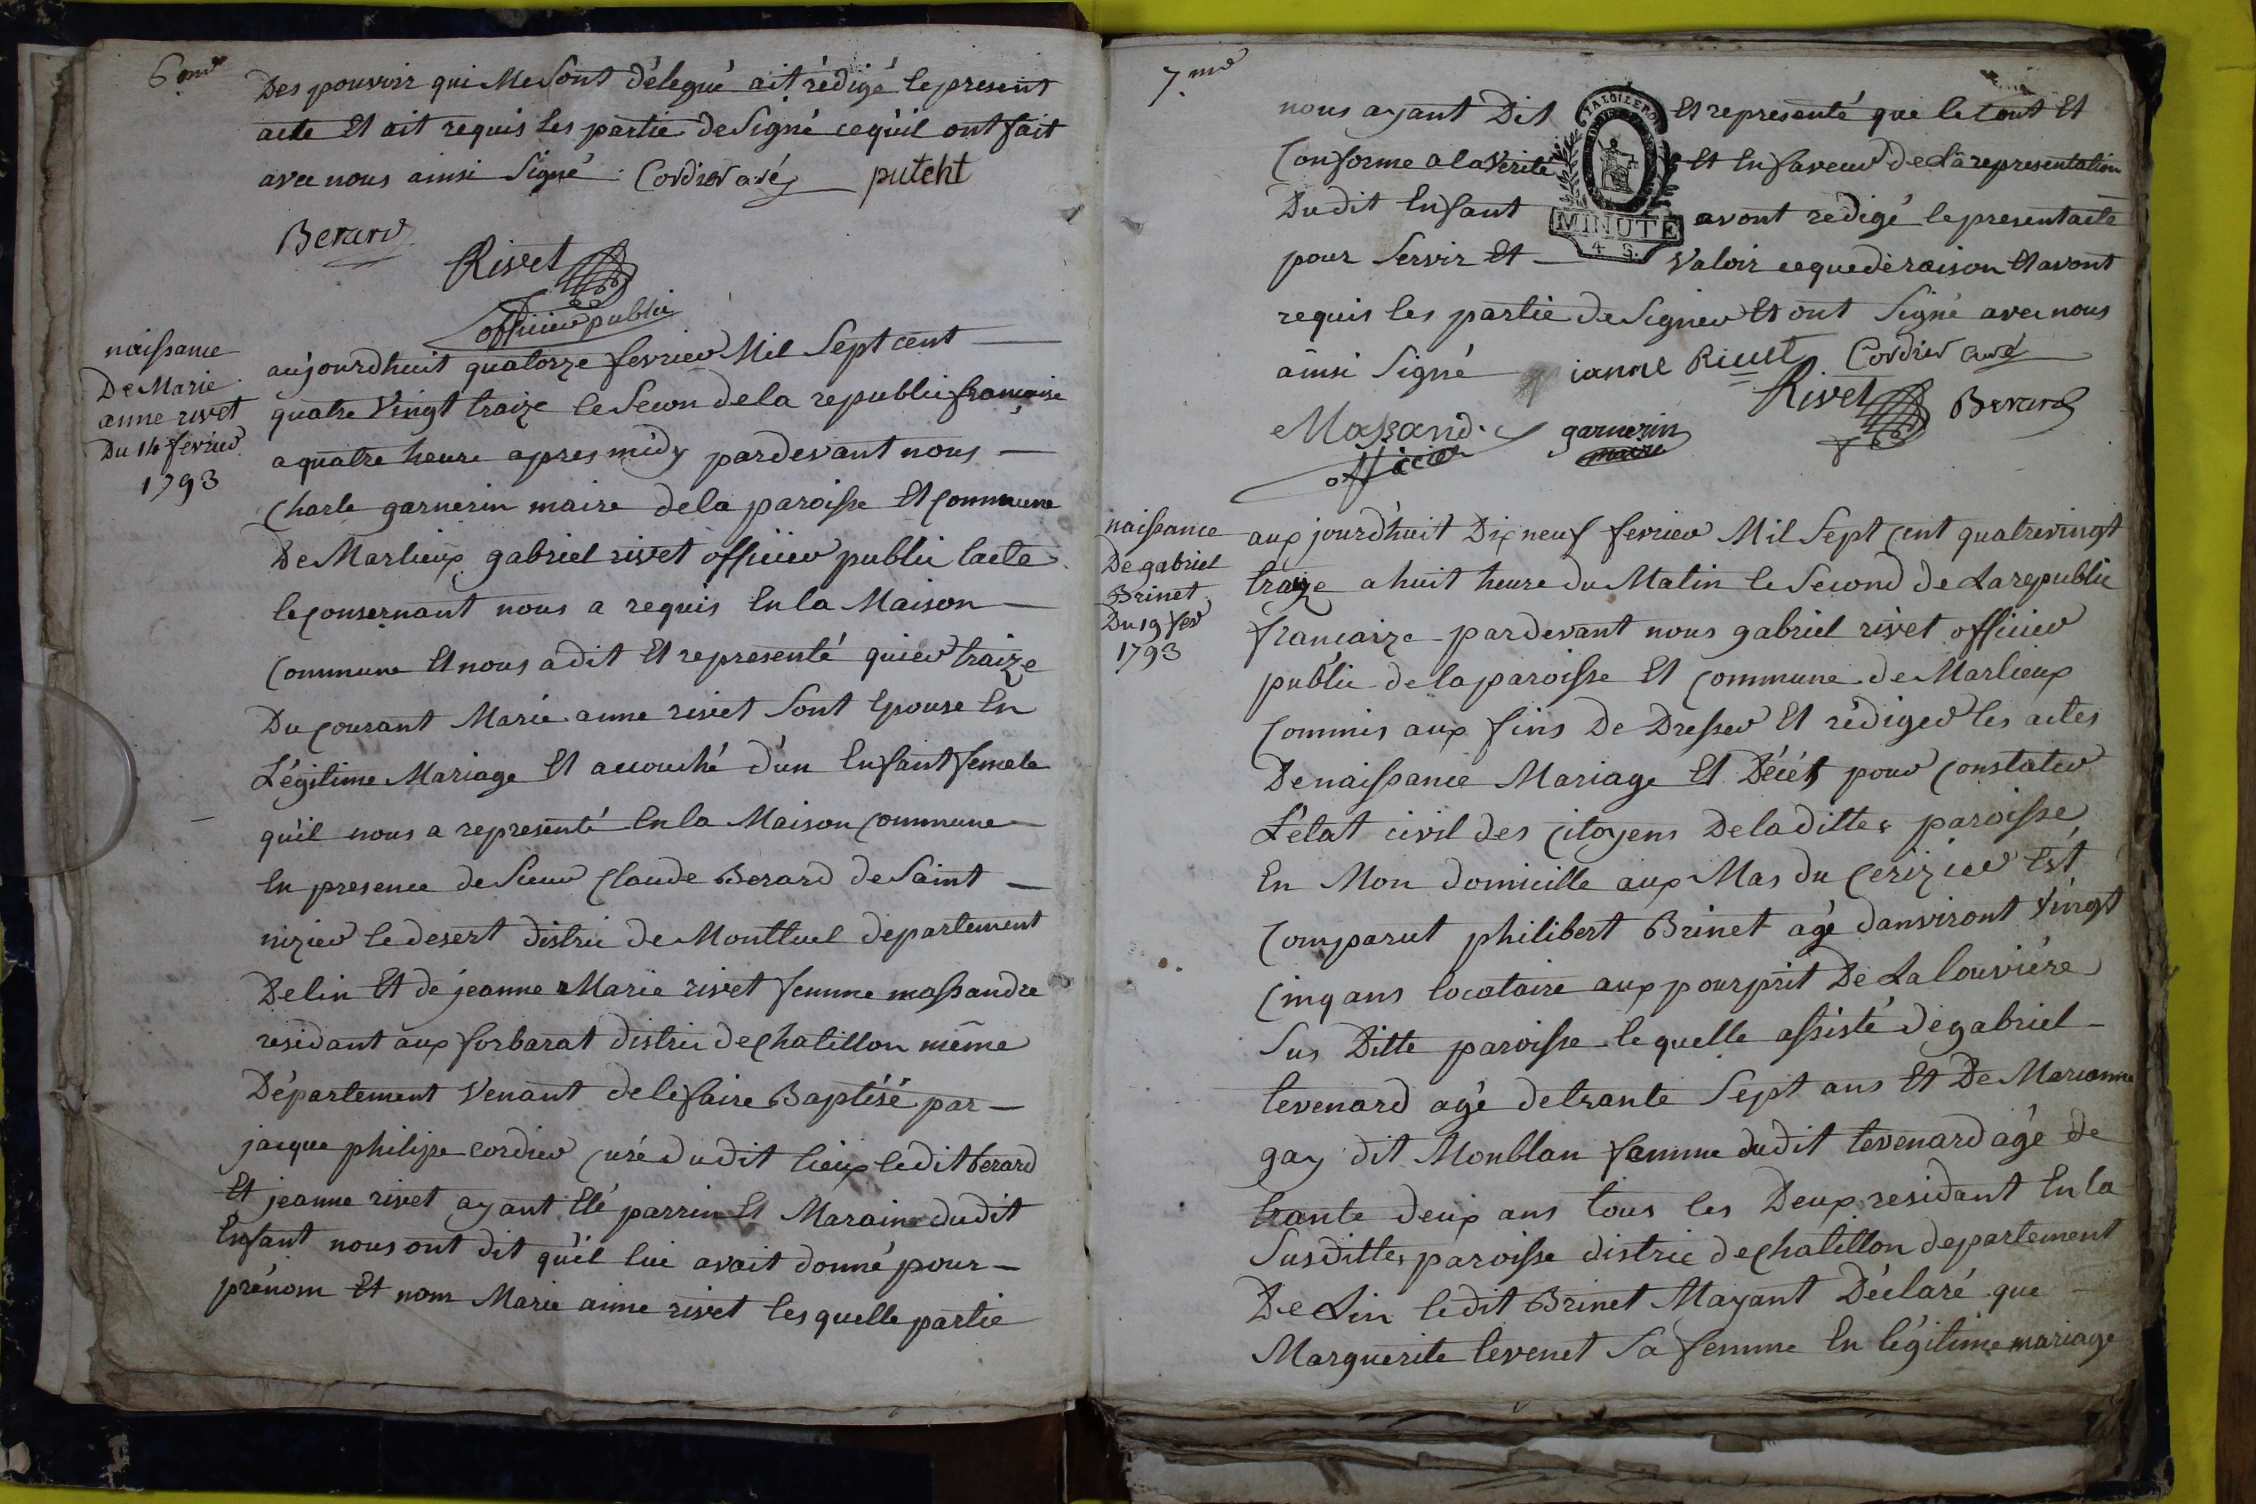 6 eme
Des pouvoir qui Me sont délegué ait rédigé le present
acte Et ait requis les partie de Signé ce qu'il ont fait
avec nous ainsi Signé Cordier curé putcht
Berard
Rivet
officier public
naissance
De Marie
anne rivet
Du 14 fevrier
1793
aujourdhuit quatorze fevrier Mil Sept cent
quatre Vingt traize le Secon de la republic francaise
a quatre heure apres midy pardevant nous
Charle garnerin maire de la paroisse Et Commune
De Marlieux gabriel rivet officier public lacte
le Consernant nous a requis En la Maison
Commune Et nous a dit Et representé quier traize
Du Courant Marie anne rivet Sont Epouse En
Légitime Mariage Et accouché d'un Enfant femele
qu'il nous a representé En la Maison Commune
En presence de Sieur Claude Berard de Saint
nizier le desert distric de Montluel departement
De lin Et de jeanne Marie rivet femme massandre
residant aux forbarat distric de Chatillon même
Département Venant de le faire Baptisé par
jacque philipe cordier Curé du dit lieux le dit berard
Et jeanne rivet ayant Eté parrin Et Maraine dudit
Enfant nous ont dit qu'il lui avait donné pour
prénom Et nom Marie anne rivet les quelle partie
7. me
nous ayant Dit Et representé que le tout Et
Conforme a la Verité Et En faveur de La representation
Du dit Enfant avont redigé le present acte
pour Servir Et Valoir ce que de raison Et avont
requis les partie de Signer Et ont Signé avec nous
ainsi Signé ianne Riuet Cordier Curé
MINUTE
4 S.
Rivet Berard
Massand garnerin
officier maire
naissance
De gabriel
Brinet
Du 19 fev
1793
aux jourd'huit Dix neuf fevrier Mil Sept Cent quatrevingt
traize a huit heure du Matin le Second de La republic
francaize pardevant nous gabriel rivet officier
public de la paroisse Et Commune de Marlieux
Commis aux fins De Dresser Et rédiger les actes
De naissance Mariage Et Décés pour Constater
L'état civil des Citoyens De la ditte paroisse
En Mon domicille aux Mas du Cerizier Est
Comparut philibert Brinet agé danviront Vingt
Cinq ans locataire aux pourprit De La louvière
Sus Ditte paroisse le quelle assisté de gabriel
tevenard agé de trante Sept ans Et De Marianne
gay dit Monblan femme du dit tevenard agé de
trante deux ans tous les Deux residant En la
Susditte paroisse distric de Chatillon departement
De Lin le dit Brinet Mayant Déclaré que
Marguerite tevenet Sa femme En légitime mariage